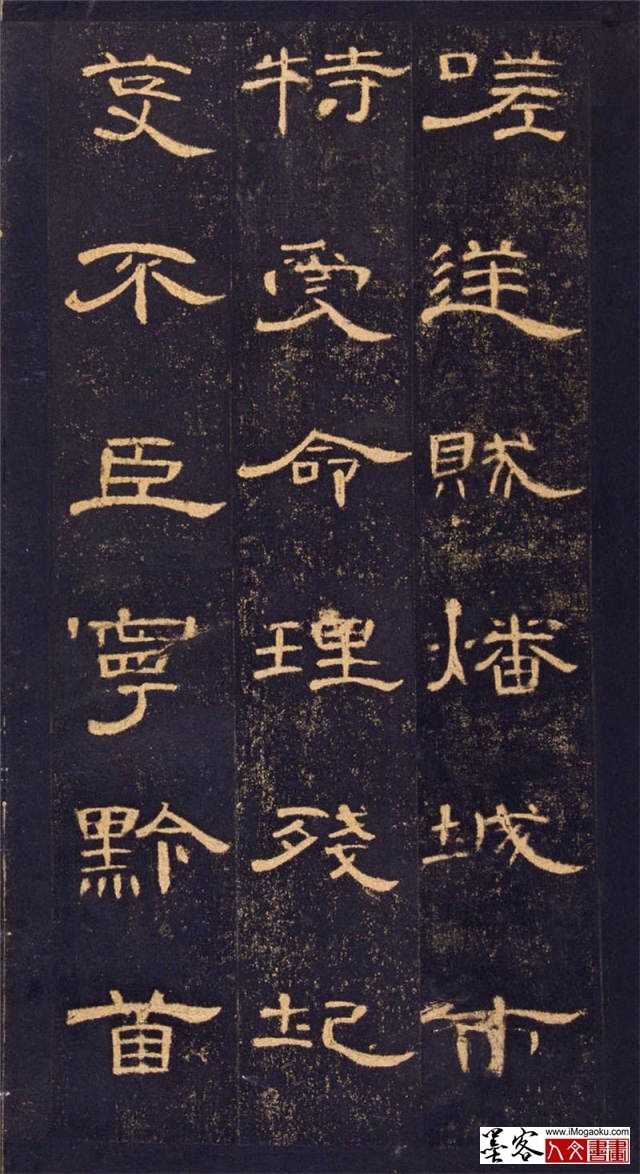 嗟逆賊燔城市
特受命理殘圮
芟不臣寧黔首
www.iMogaoku.com
墨客 人文書畫